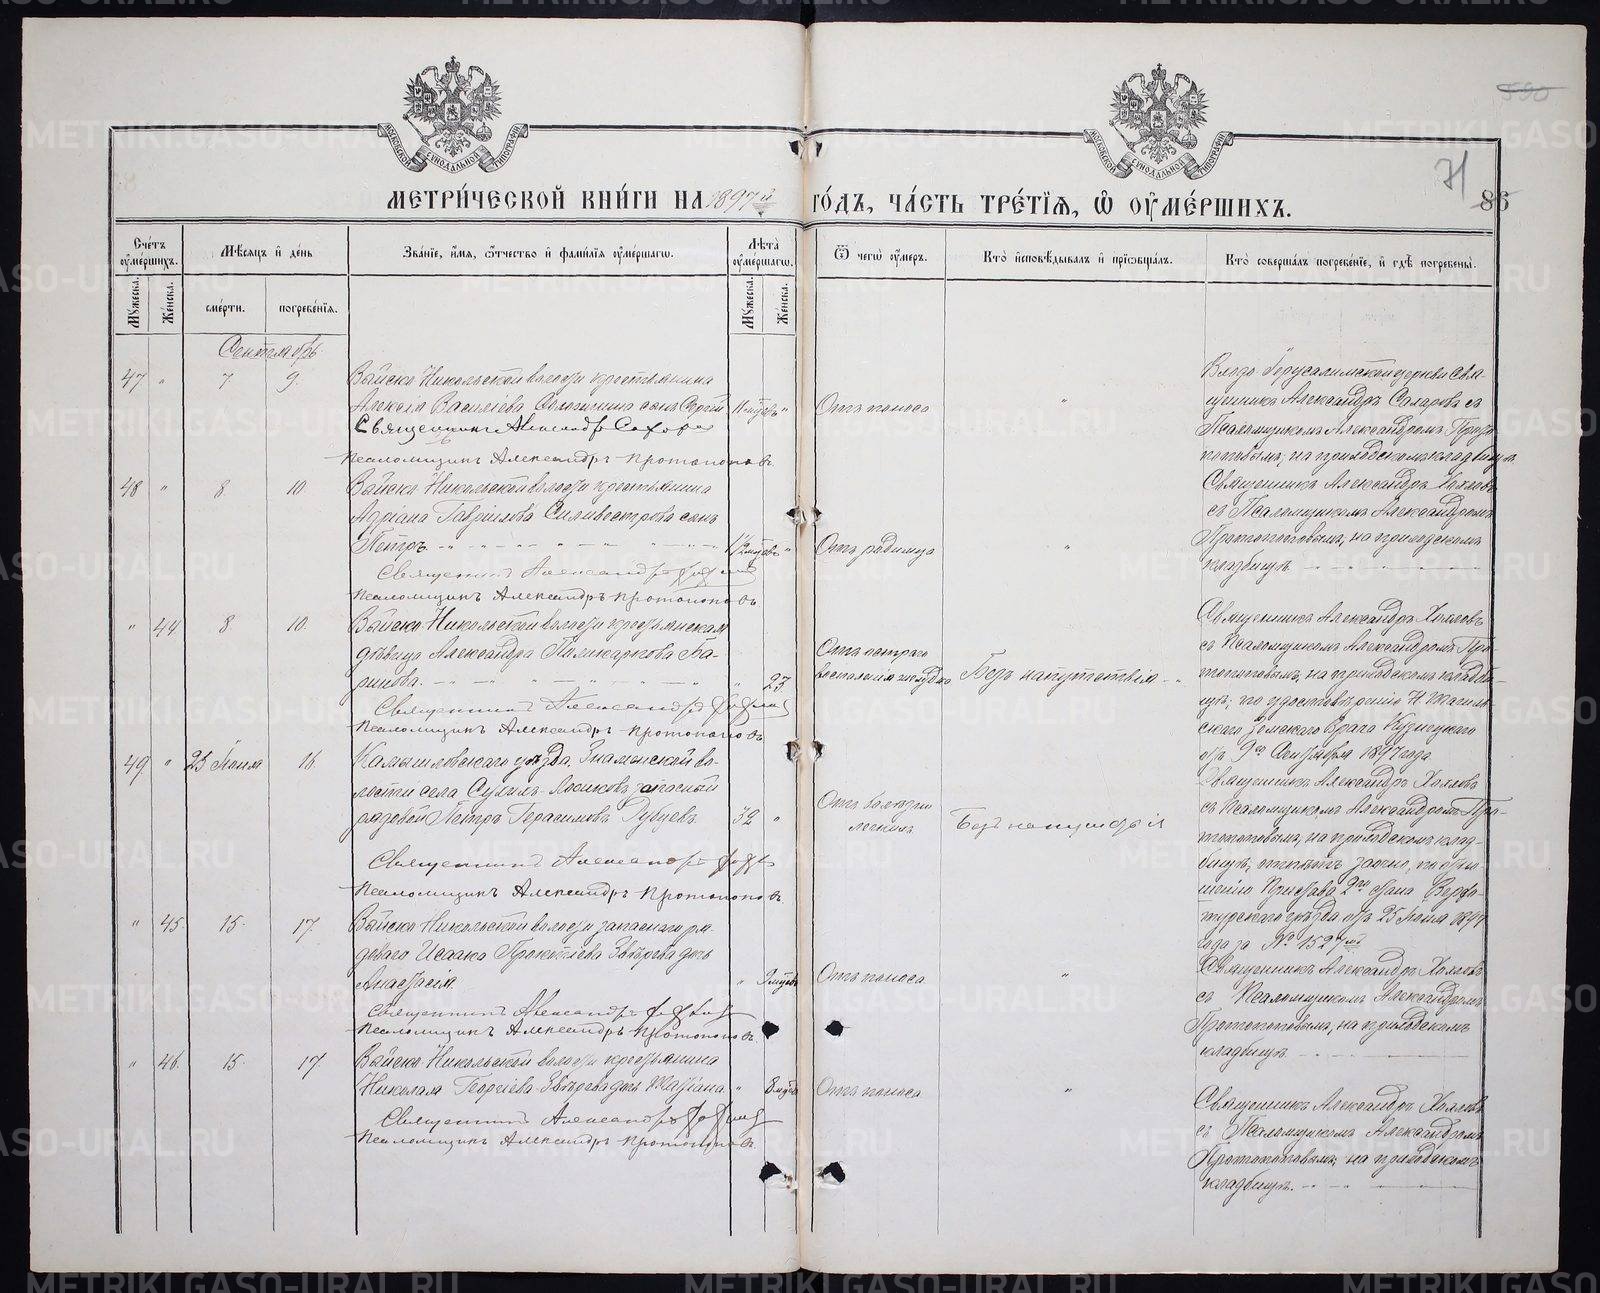 МЕТРИ́ЧЕСКОЙ КНИ́ГИ НА 1897й ГО́ДЪ, ЧА́СТЬ ТРЕ́ТІѦ, Ѡ ОУ҆МЕ́РШИХЪ.
МОСКОВСКОЙ СѴНОДАЛЬНОЙ ТИПОГРАФІИ
МОСКОВСКОЙ СѴНОДАЛЬНОЙ ТИПОГРАФІИ
590
71
86
Сче́тъ оу҆ме́ршихъ.
Мужеска.
Же́нска.
Мѣ́сѧцъ и҆ де́нь
сме́рти.
погребе́нїѧ.
Зва́нїе, и҆́мѧ, ѻ҆́тчество и҆ фами́лїѧ оу҆ме́ршагѡ.
Лѣ́та оу҆ме́ршагѡ.
Мужеска.
Же́нска.
Ѿ чегѡ̀ оу҆́меръ.
Кто̀ и҆сповѣ́дывалъ и҆ прїѡбща́лъ.
Кто̀ соверша́лъ погребе́нїе, и҆ гдѣ̀ погребены̀.
Сентябрь
47 " 7 9.
Выйско Никольской волости крестьянина
Алексія Василіева сынъ Сергій 11 мцевъ "
Священникъ Александръ
Псаломщикъ Александръ Протопоповъ
Отъ поноса
"
Входо Іерусалимской церкви Свя-
щенникъ Александръ съ
Псаломщикомъ Александромъ Прото-
поповымъ, на приходскомъ кладбищѣ.
48 " 8. 10
Выйско Никольской волости крестьянина
Адріана Гавріилова Силивестрова сынъ
Петръ 1½ мцевъ "
Священникъ Александръ Хохловъ
Псаломщикъ Александръ Протопоповъ
Отъ родимца
"
Священникъ Александръ Хохловъ
съ Псаломщикомъ Александромъ
Протопоповымъ, на приходскомъ
кладбищѣ.
" 44 8. 10.
Выйско Никольской волости крестьянская
дѣвица Александра Поликарпова Ба-
ринова. " 23
Священникъ Александръ Хохловъ
Псаломщикъ Александръ Протопоповъ
Отъ остраго
воспаленія желудка
Безъ напутствія "
Священникъ Александръ Хохловъ
съ Псаломщикомъ Александромъ Про-
топоповымъ, на приходскомъ кладби-
щѣ, по удостовѣренію Н Тагиль-
скаго Земскаго Врача Кузнецкаго
отъ 9го Сентября 1897 года
49 " 25 Іюля 16
Камышловскаго уѣзда, Знаменской во-
лости села Сухихъ запасный
рядовой Петръ Герасимовъ 32 "
Священникъ Александръ Хохловъ
Псаломщикъ Александръ Протопоповъ
Отъ
легкихъ
Безъ напутствія
Священникъ Александръ Хохловъ
съ Псаломщикомъ Александромъ Про-
топоповымъ, на приходскомъ клад-
бищѣ, отпѣтъ заочно, по отно-
шенію Пристава 2го стана Верхо-
турскаго уѣзда отъ 25 Іюля 1897
года за № 1527мъ
" 45. 15. 17.
Выйско Никольской волости запаснаго ря-
доваго Исаака Прокопіева Звѣрева дочь
Анастасія. " 9 мцевъ
Священникъ Александръ Хохловъ
Псаломщикъ Александръ Протопоповъ
Отъ поноса
"
Священникъ Александръ Хохловъ
съ Псаломщикомъ Александромъ
Протопоповымъ, на приходскомъ
кладбищѣ.
" 46. 15. 17.
Выйско Никольской волости крестьянина
Николая Георгіева Звѣрева дочь Татіана. " 8 мцевъ
Священникъ Александръ Хохловъ
Псаломщикъ Александръ Протопоповъ
Отъ поноса
"
Священникъ Александръ Хохловъ
съ Псаломщикомъ Александромъ
Протопоповымъ, на приходскомъ
кладбищѣ.
METRIKI.GASO-URAL.RU